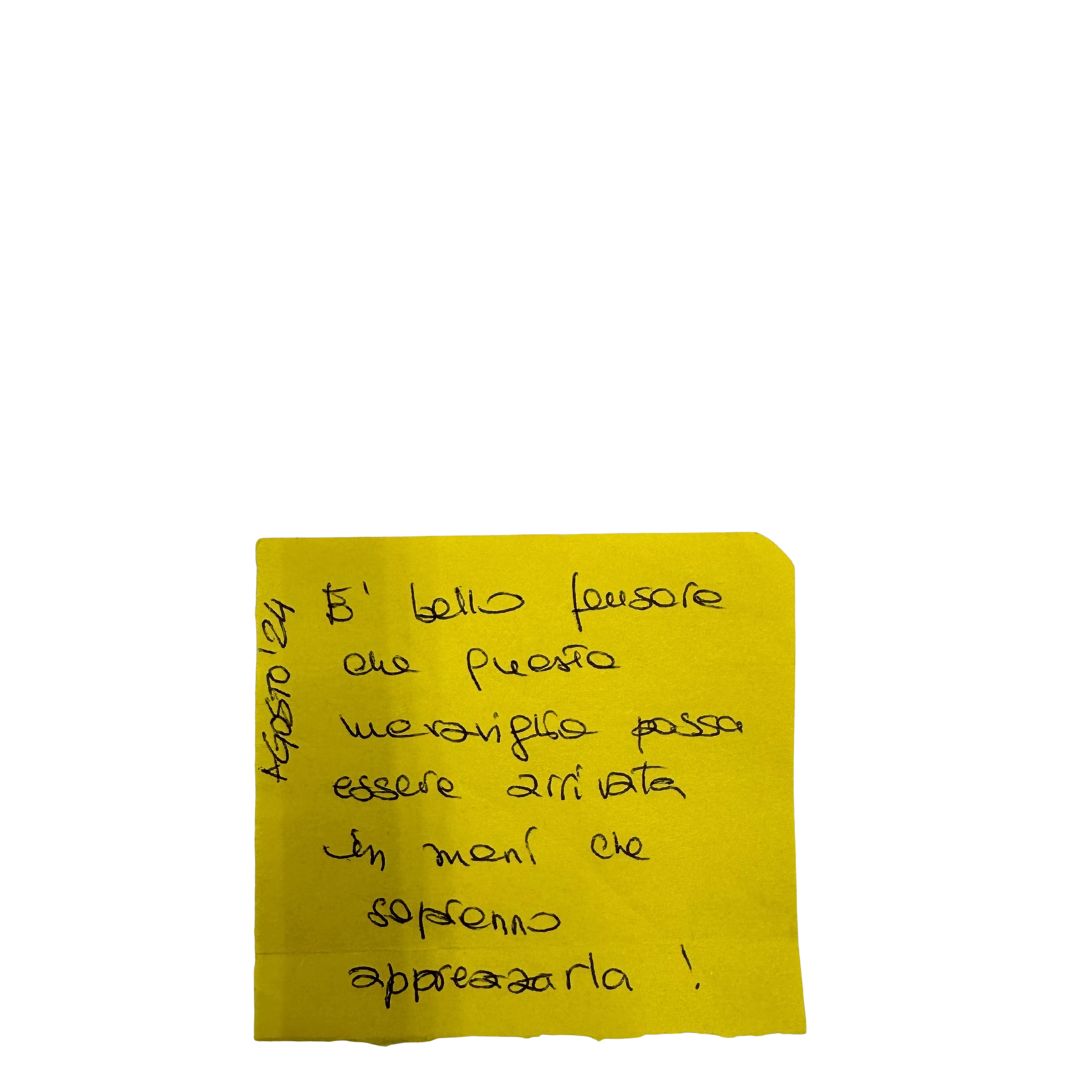 AGOSTO '24
E' bello pensare
che questa
meraviglia possa
essere arrivata
in mani che
sapranno
apprezzarla !